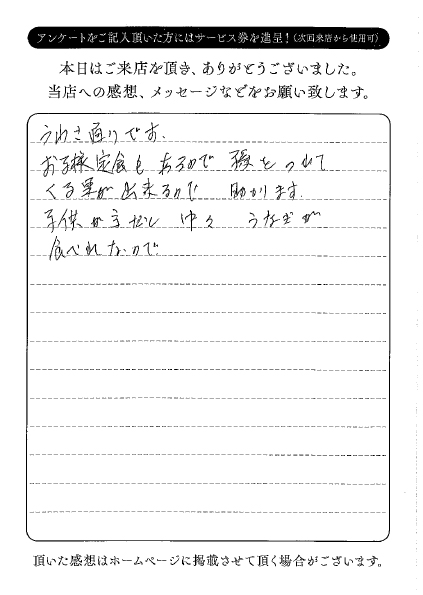 アンケートをご記入頂いた方にはサービス券を進呈！（次回来店から使用可）
本日はご来店を頂き、ありがとうございました。
当店への感想、メッセージなどをお願い致します。
うわさ通りです.
お子様定食も あるので 孫を つれて
くる事が 出来るので 助かります.
子供が 中々 うなぎが
食べれないので.
頂いた感想はホームページに掲載させて頂く場合がございます。